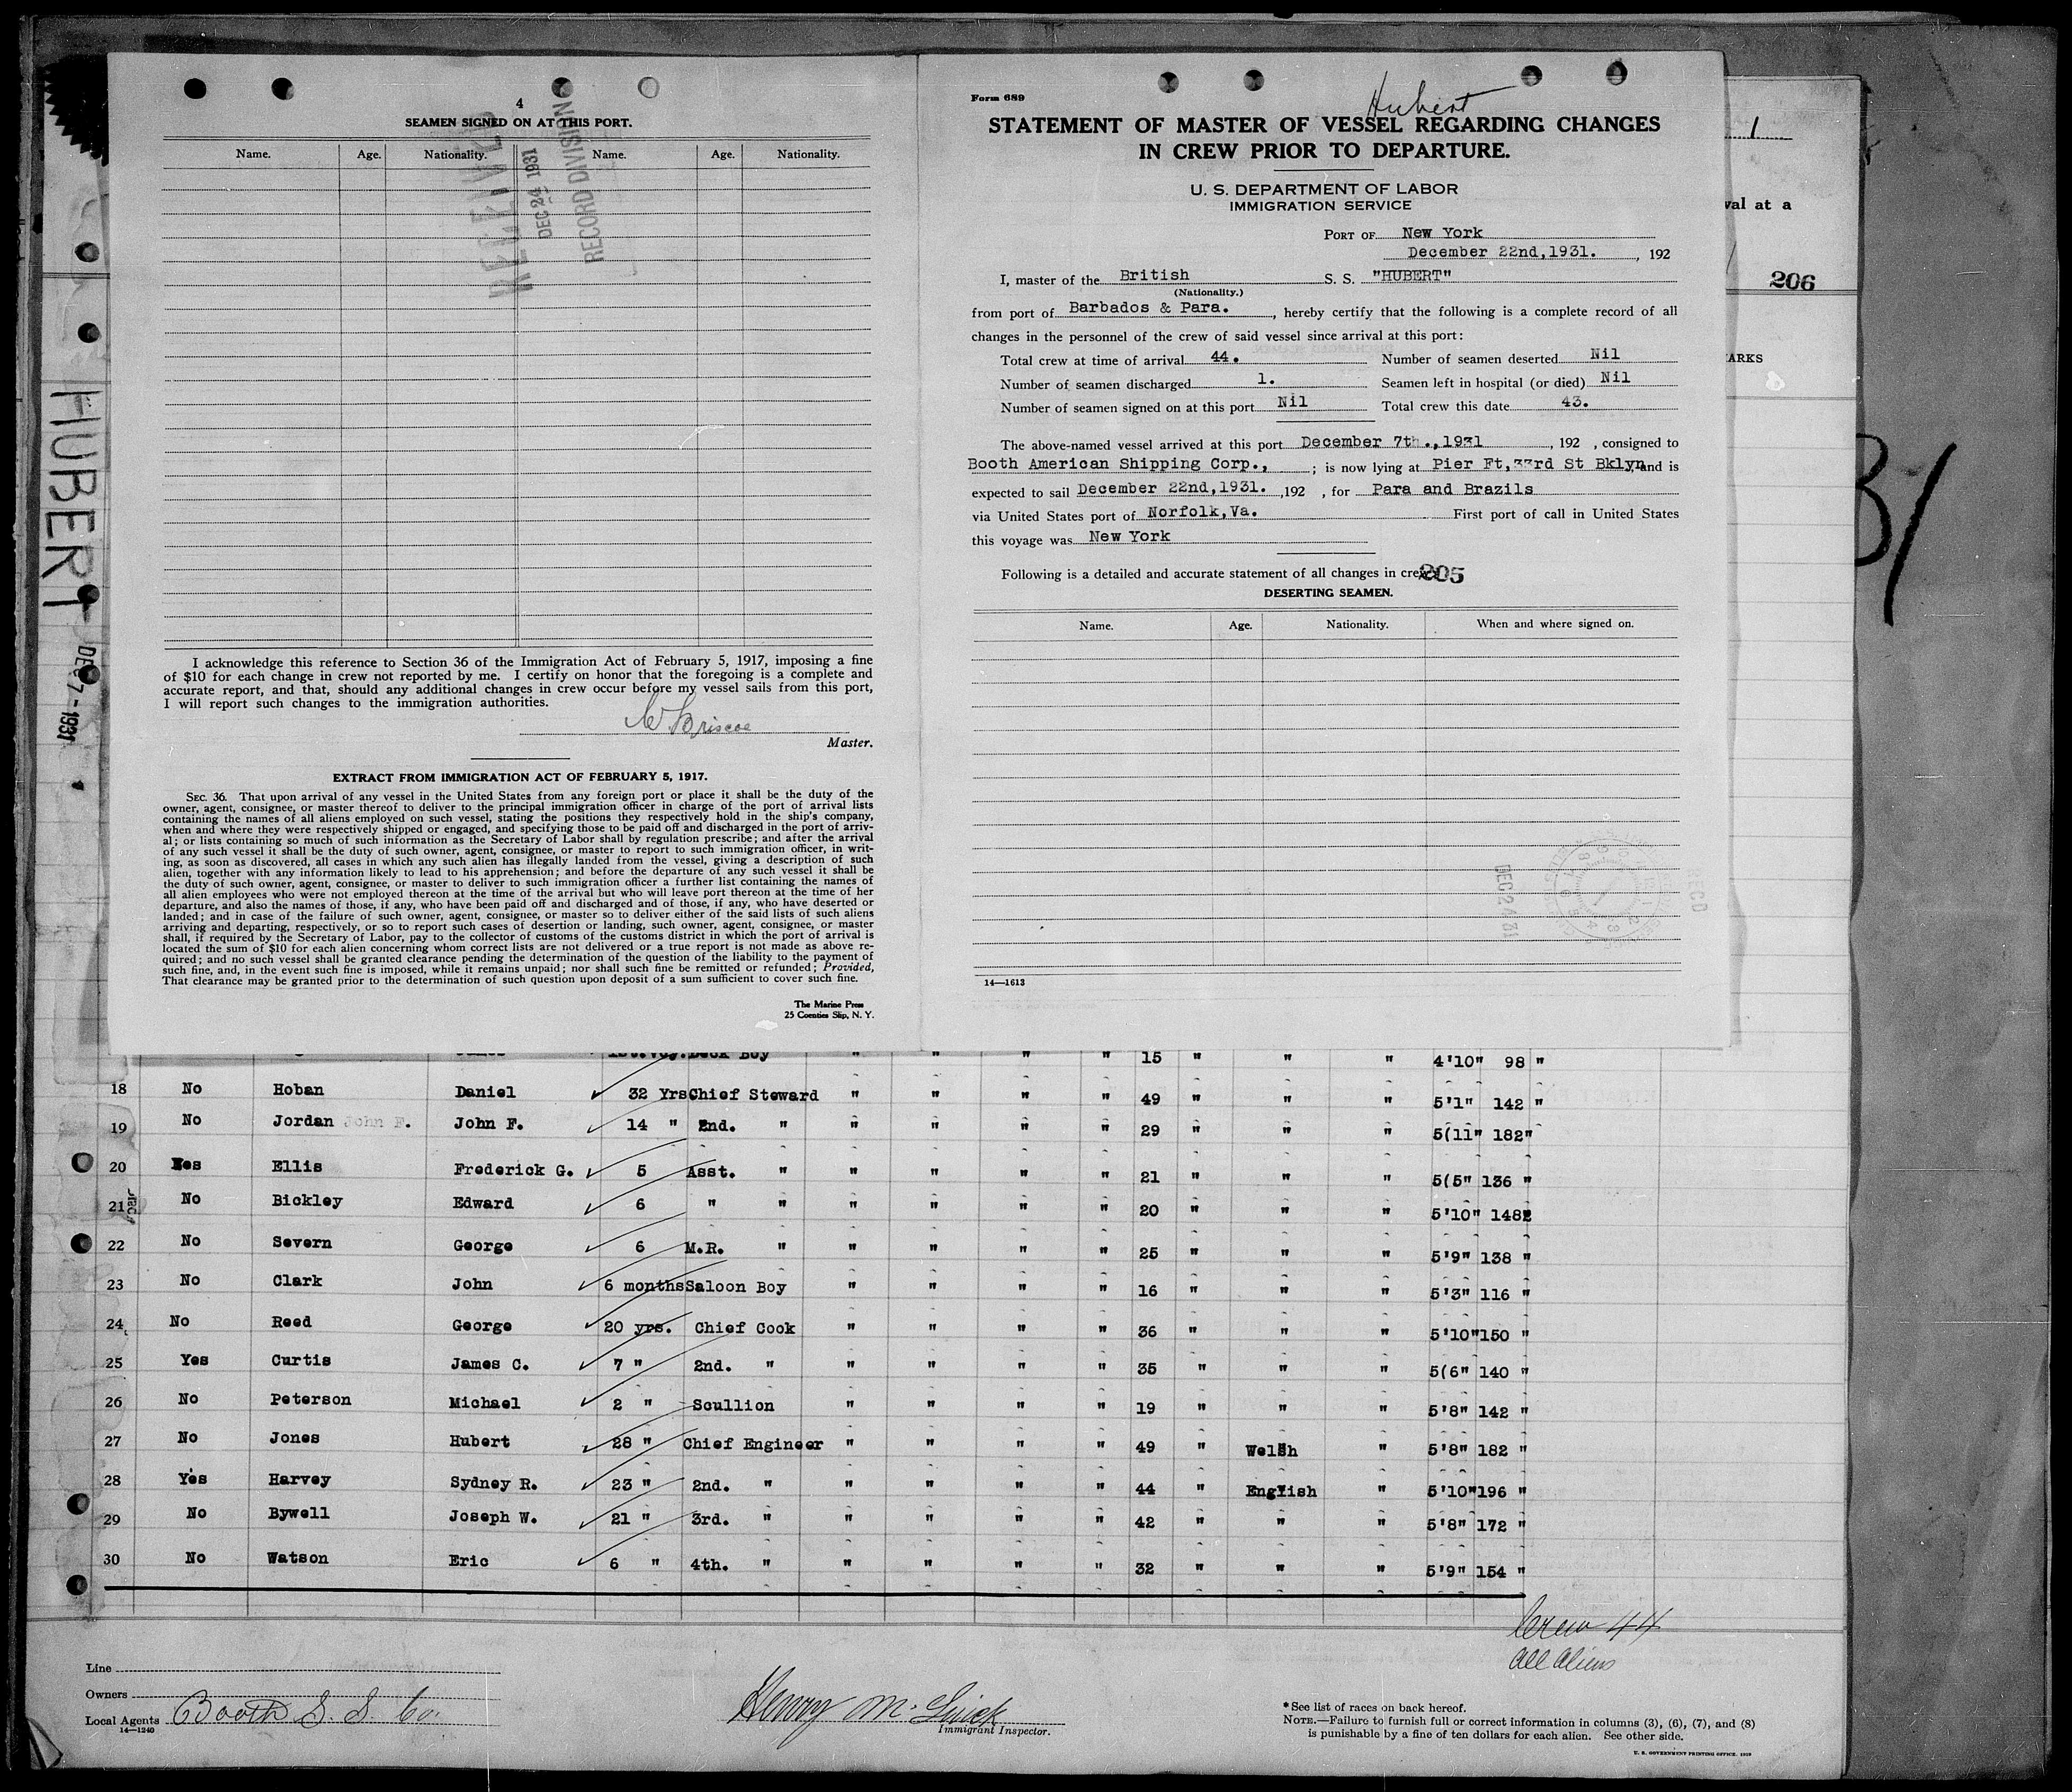 4
SEAMEN SIGNED ON AT THIS PORT.
Name. Age. Nationality. Name. Age. Nationality.
RECEIVED
DEC 24 1931
RECORD DIVISION
I acknowledge this reference to Section 36 of the Immigration Act of February 5, 1917, imposing a fine
of $10 for each change in crew not reported by me. I certify on honor that the foregoing is a complete and
accurate report, and that, should any additional changes in crew occur before my vessel sails from this port,
I will report such changes to the immigration authorities.
W Briscoe
Master.
EXTRACT FROM IMMIGRATION ACT OF FEBRUARY 5, 1917.
SEC. 36. That upon arrival of any vessel in the United States from any foreign port or place it shall be the duty of the
owner, agent, consignee, or master thereof to deliver to the principal immigration officer in charge of the port of arrival lists
containing the names of all aliens employed on such vessel, stating the positions they respectively hold in the ship's company,
when and where they were respectively shipped or engaged, and specifying those to be paid off and discharged in the port of arriv-
al; or lists containing so much of such information as the Secretary of Labor shall by regulation prescribe; and after the arrival
of any such vessel it shall be the duty of such owner, agent, consignee, or master to report to such immigration officer, in writ-
ing, as soon as discovered, all cases in which any such alien has illegally landed from the vessel, giving a description of such
alien, together with any information likely to lead to his apprehension; and before the departure of any such vessel it shall be
the duty of such owner, agent, consignee, or master to deliver to such immigration officer a further list containing the names of
all alien employees who were not employed thereon at the time of the arrival but who will leave port thereon at the time of her
departure, and also the names of those, if any, who have been paid off and discharged and of those, if any, who have deserted or
landed; and in case of the failure of such owner, agent, consignee, or master so to deliver either of the said lists of such aliens
arriving and departing, respectively, or so to report such cases of desertion or landing, such owner, agent, consignee, or master
shall, if required by the Secretary of Labor, pay to the collector of customs of the customs district in which the port of arrival is
located the sum of $10 for each alien concerning whom correct lists are not delivered or a true report is not made as above re-
quired; and no such vessel shall be granted clearance pending the determination of the question of the liability to the payment of
such fine, and, in the event such fine is imposed, while it remains unpaid; nor shall such fine be remitted or refunded; Provided,
That clearance may be granted prior to the determination of such question upon deposit of a sum sufficient to cover such fine.
The Marine Press
25 Coenties Slip, N. Y.
Form 689
Hubert
STATEMENT OF MASTER OF VESSEL REGARDING CHANGES
IN CREW PRIOR TO DEPARTURE.
U. S. DEPARTMENT OF LABOR
IMMIGRATION SERVICE
PORT OF New York
December 22nd,1931. , 192
I, master of the British S. S. "HUBERT"
(Nationality.)
from port of Barbados & Para. , hereby certify that the following is a complete record of all
changes in the personnel of the crew of said vessel since arrival at this port:
Total crew at time of arrival 44. Number of seamen deserted Nil
Number of seamen discharged 1. Seamen left in hospital (or died) Nil
Number of seamen signed on at this port Nil Total crew this date 43.
The above-named vessel arrived at this port December 7th.,1931 , 192 , consigned to
Booth American Shipping Corp., ; is now lying at Pier Ft,33rd St Bklyn and is
expected to sail December 22nd,1931. ,192 , for Para and Brazils
via United States port of Norfolk,Va. First port of call in United States
this voyage was New York
Following is a detailed and accurate statement of all changes in crew:
205
DESERTING SEAMEN.
Name. Age. Nationality. When and where signed on.
DEC 24 31
RECD
14—1613
1
val at a
206
ARKS
31
HUBERT
DEC 7 - 1931
1st.Voy. Deck Boy " " " " 15 " " " 4'10" 98 "
18 No Hoban Daniel 32 Yrs Chief Steward " " " " 49 " " " 5'1" 142 "
19 No Jordan John F. John F. 14 " 2nd. " " " " " 29 " " " 5(11" 182"
20 Yes Ellis Frederick G. 5 Asst. " " " " " 21 " " " 5(5" 136 "
21 No Bickley Edward 6 " " " " " " 20 " " " 5'10" 148"
22 No Severn George 6 M.R. " " " " " 25 " " " 5'9" 138 "
23 No Clark John 6 months Saloon Boy " " " " 16 " " " 5'3" 116 "
24 No Reed George 20 yrs. Chief Cook " " " " 36 " " " 5'10" 150 "
25 Yes Curtis James C. 7 " 2nd. " " " " " 35 " " " 5(6" 140 "
26 No Peterson Michael 2 " Scullion " " " " 19 " " " 5'8" 142 "
27 No Jones Hubert 28 " Chief Engineer " " " " 49 " Welsh " 5'8" 182 "
28 Yes Harvey Sydney R. 23 " 2nd. " " " " " 44 " English " 5'10" 196 "
29 No Bywell Joseph W. 21 " 3rd. " " " " " 42 " " " 5'8" 172 "
30 No Watson Eric 6 " 4th. " " " " " 32 " " " 5'9" 154 "
Crew 44
All Aliens
Line
Owners
Local Agents Booth S. S. Co.
14—1240
Henry Mc
Immigrant Inspector.
* See list of races on back hereof.
NOTE.—Failure to furnish full or correct information in columns (3), (6), (7), and (8)
is punishable by a fine of ten dollars for each alien. See other side.
U. S. GOVERNMENT PRINTING OFFICE: 1929